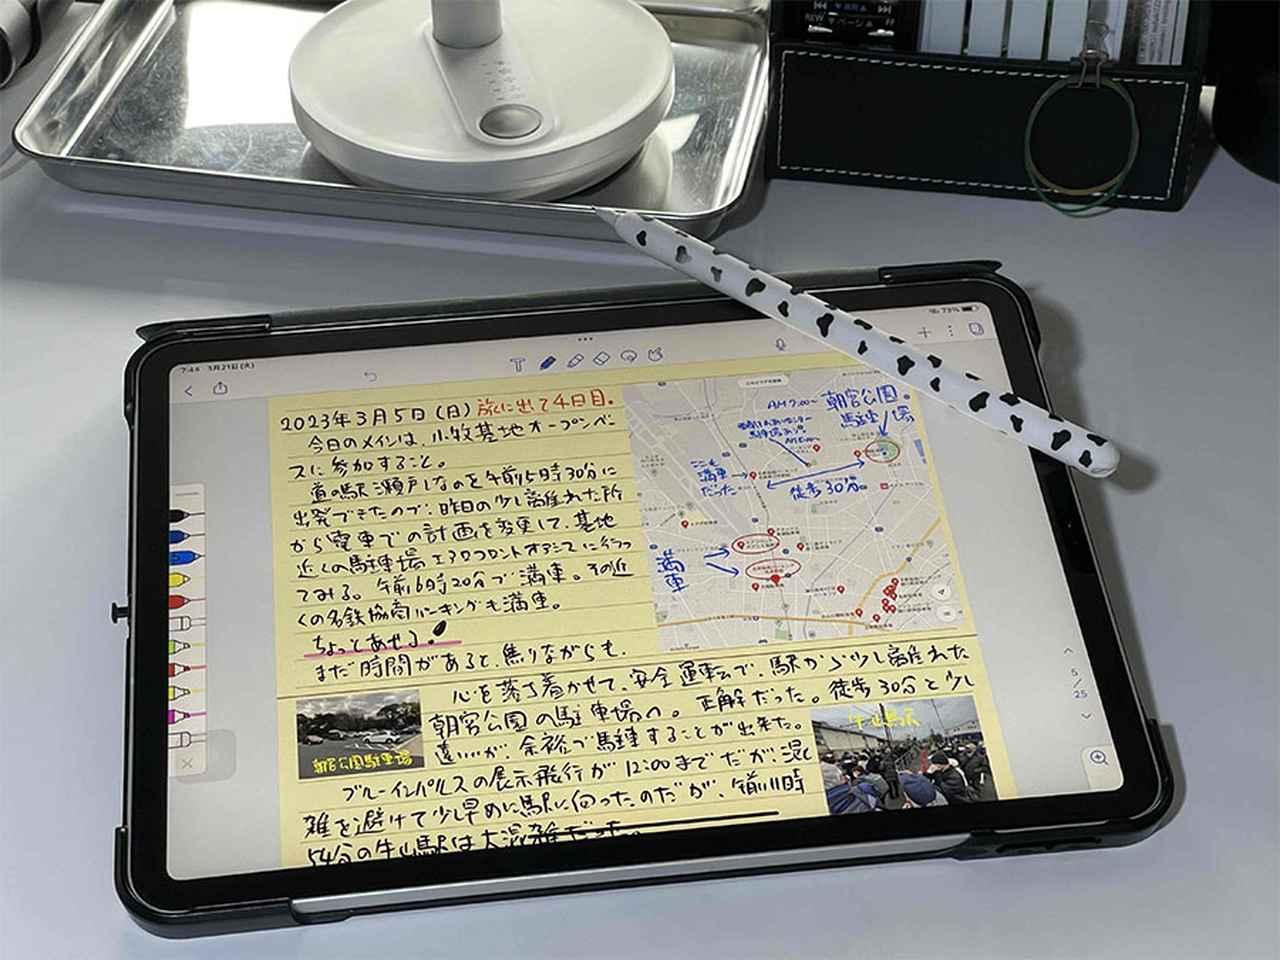 REW ▼ページ▲
7:44 3月21日(火)
73%
2023年3月5日(日) 旅に出て4日目。
今日のメインは、小牧基地オープンベー
スに参加すること。
道の駅瀬戸しなのを午前5時30分に
出発できたので、昨日の少し離れた所
から電車での計画を変更して、基地
近くの駐車場エアフロントオアシスに行っ
てみる。午前6時20分で満車。その近
くの名鉄協商パーキングも満車。
ちょっとあせる。
まだ時間があると、焦りながらも、
心を落ち着かせて、安全運転で、駅から少し離れた
朝宮公園の駐車場へ。正解だった。徒歩30分と少し
遠いが、余裕で駐車することが出来た。
ブルーインパルスの展示飛行が12:00までだが、混
雑を避けて少し早めに駅に向ったのだが、午前11時
54分の牛山駅は大混雑だった。
AM7:00〜
朝宮公園。
駐車場
ここも
満車
だった
徒歩30分。
満車
朝宮公園駐車場
牛山駅
5
25